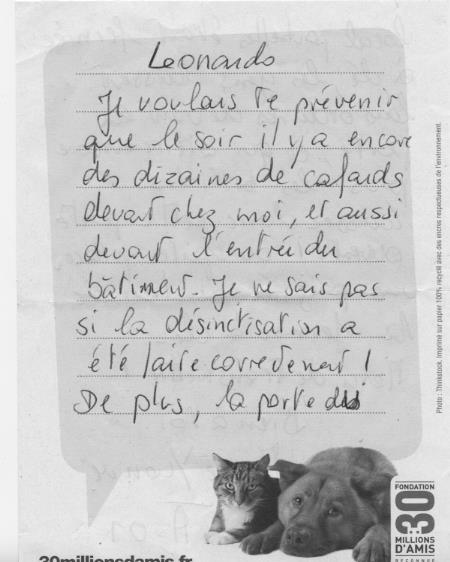 Leonardo
Je voulais te prévenir
que le soir il y a encore
des dizaines de cafards
devant chez moi, et aussi
devant l'entrée du
bâtiment. Je ne sais pas
si la désinctisation a
été faite correctement !
De plus, la porte du
Photo : Thinkstock. Imprimé sur papier 100% recyclé avec des encres respectueuses de l'environnement.
FONDATION
30
MILLIONS
D'AMIS
RECONNUE
30millionsdamis.fr